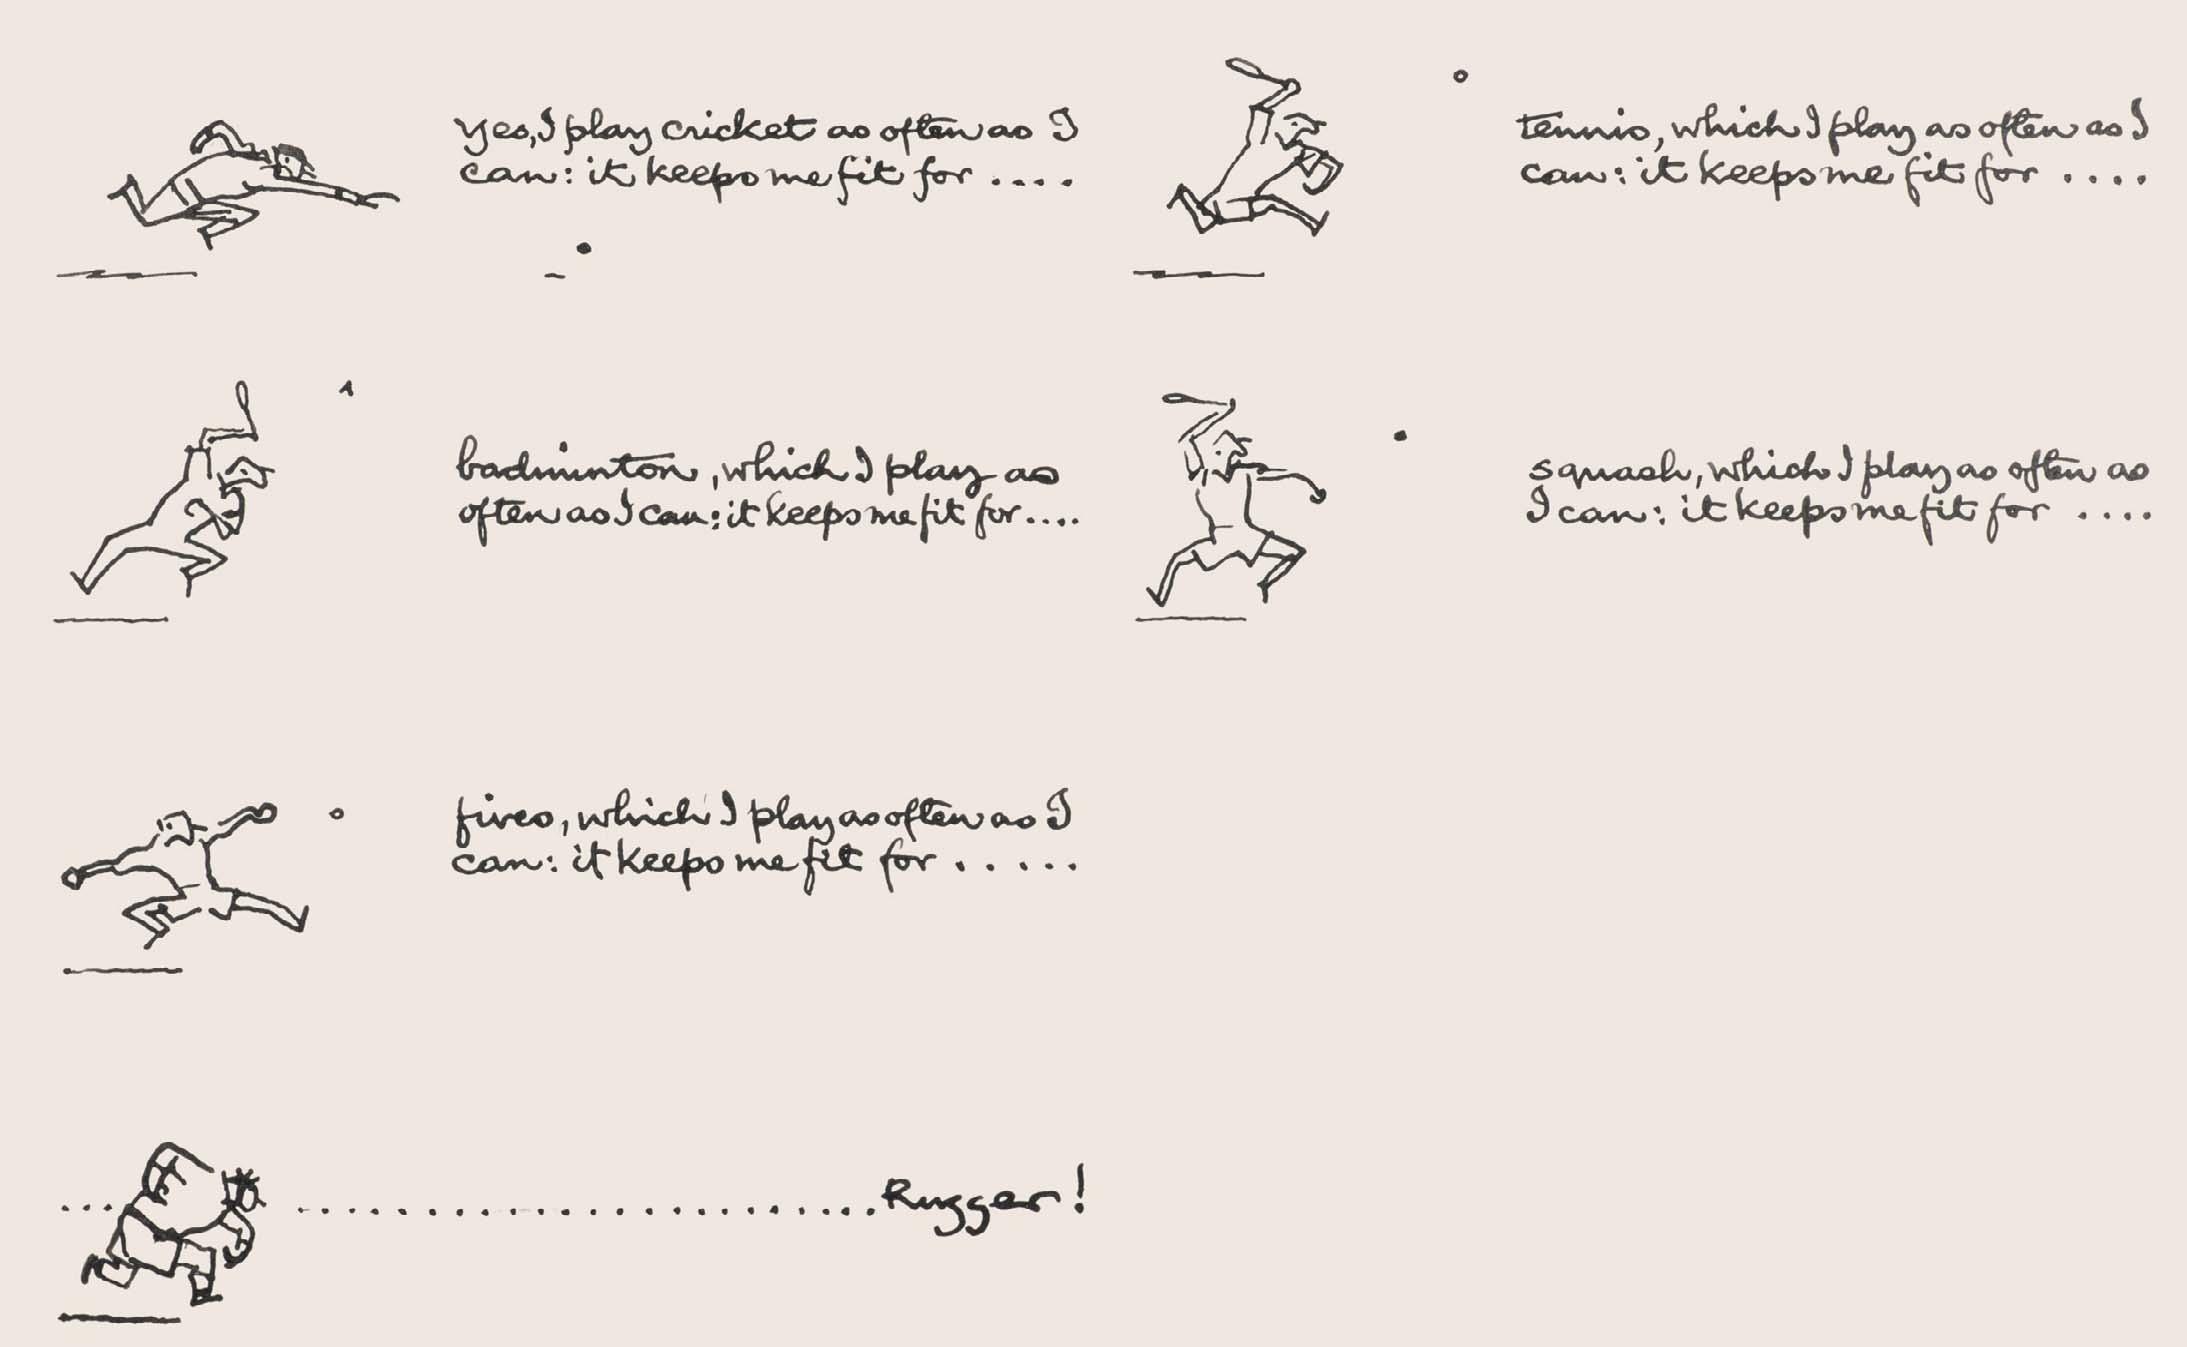 yes, I play cricket as often as I
can: it keeps me fit for ....
tennis, which I play as often as I
can: it keeps me fit for ....
badminton, which I play as
often as I can: it keeps me fit for ....
squash, which I play as often as
I can: it keeps me fit for ....
fives, which I play as often as I
can: it keeps me fit for .....
... ...................... Rugger!